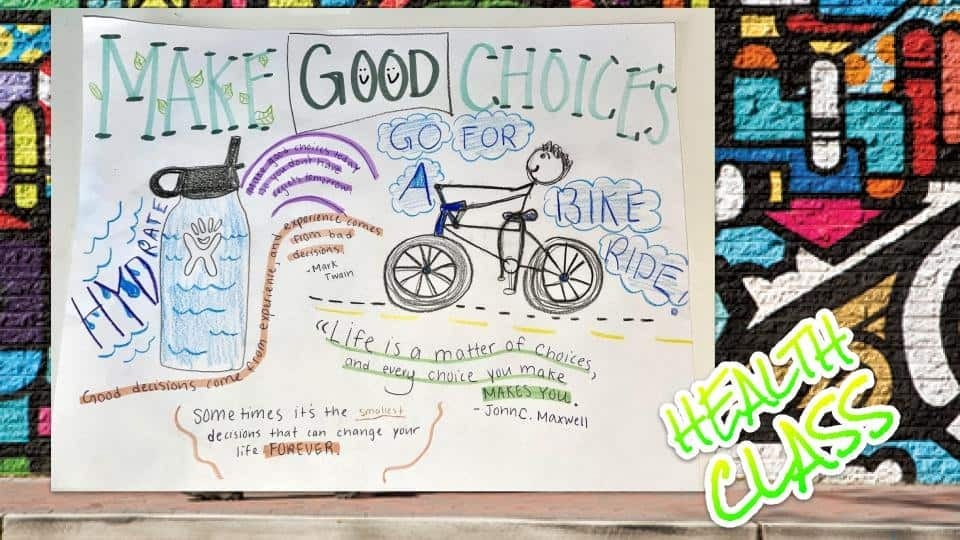 MAKE GOOD CHOICES
HYDRATE
Make good choices today
so you don't have
regrets tomorrow
GO FOR
A
BIKE
RIDE.
Good decisions come from experience, and experience comes
from bad
decisions.
-Mark
Twain
"Life is a matter of choices,
and every choice you make
MAKES YOU.
- John C. Maxwell
Sometimes it's the smallest
decisions that can change your
life FOREVER
HEALTH
CLASS